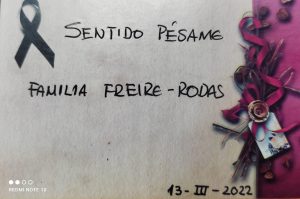 SENTIDO PÉSAME
FAMILIA FREIRE-RODAS
13-III-2022
REDMI NOTE 12